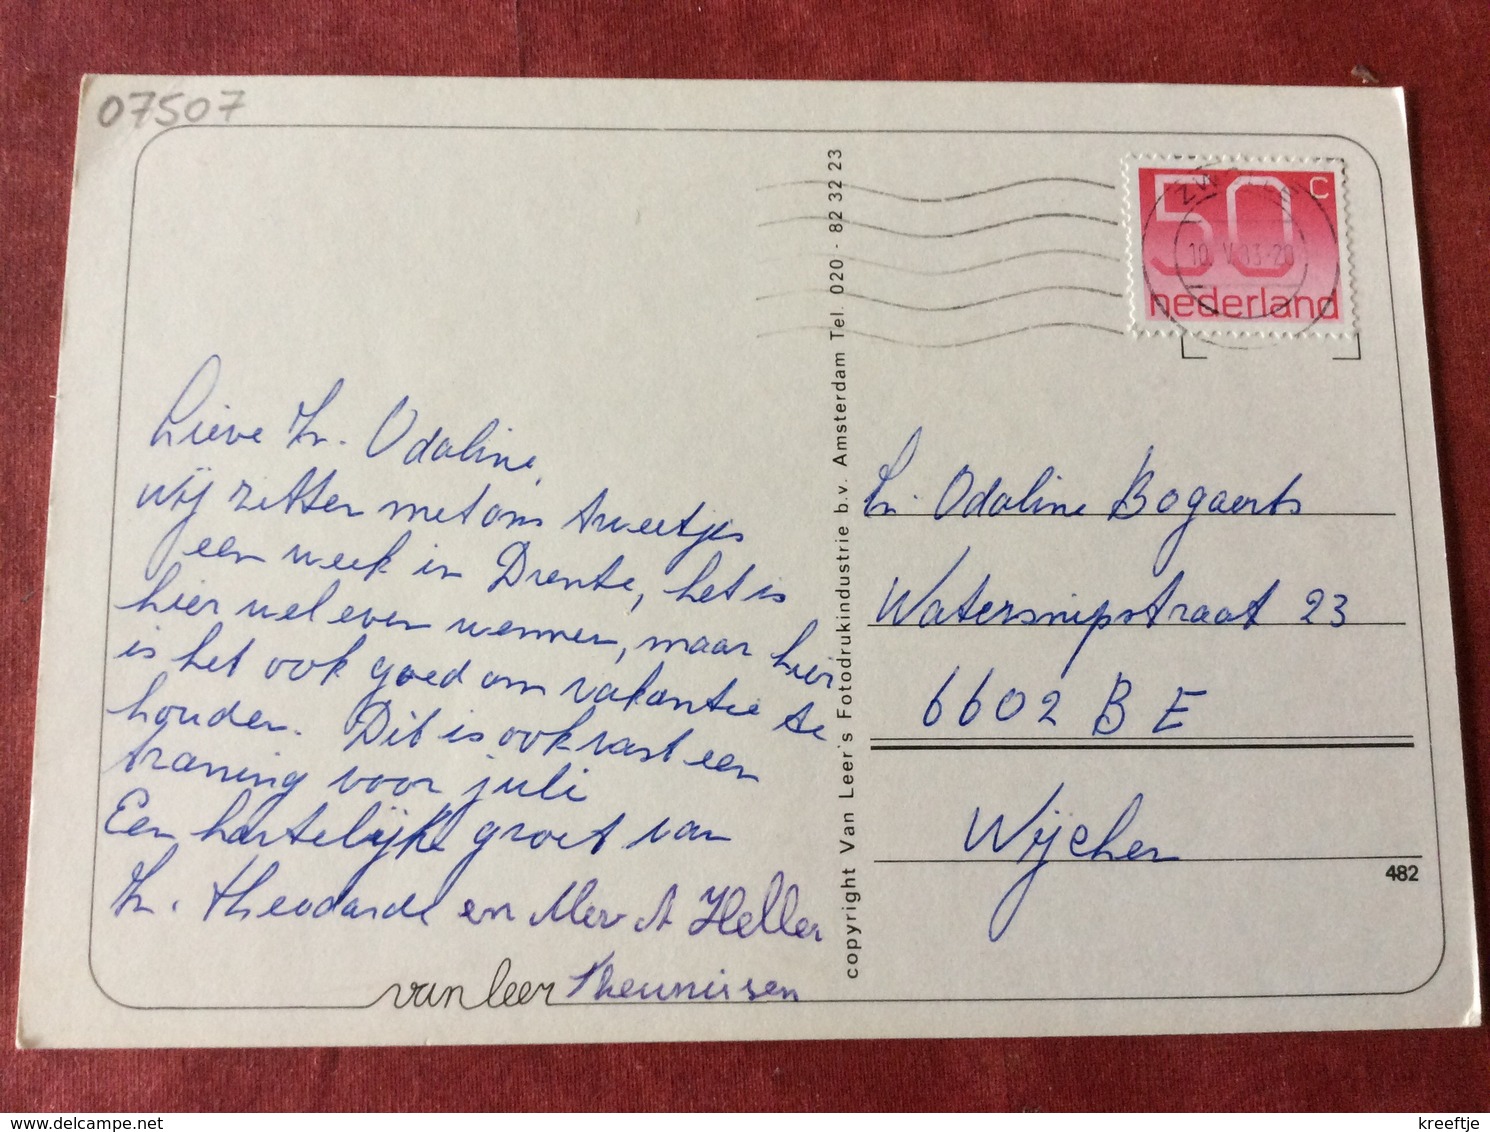 07507
Lieve Zr. Odaline,
Wij zitten met ons tweetjes
een week in Drente, het is
hier wel even wennen, maar hier
is het ook goed om vakantie te
houden. Dit is ook vast een
traning voor juli
Een hartelijke groet van
Zr. Theodarde en Mev A Heller
Theunissen
van leer
copyright Van Leer's Fotodrukindustrie b.v. Amsterdam Tel. 020 - 82 32 23
50 c
nederland
10.V.83-20
Zr. Odaline Bogaerts
Watersnipstraat 23
6602 BE
Wijchen
482
kreeftje